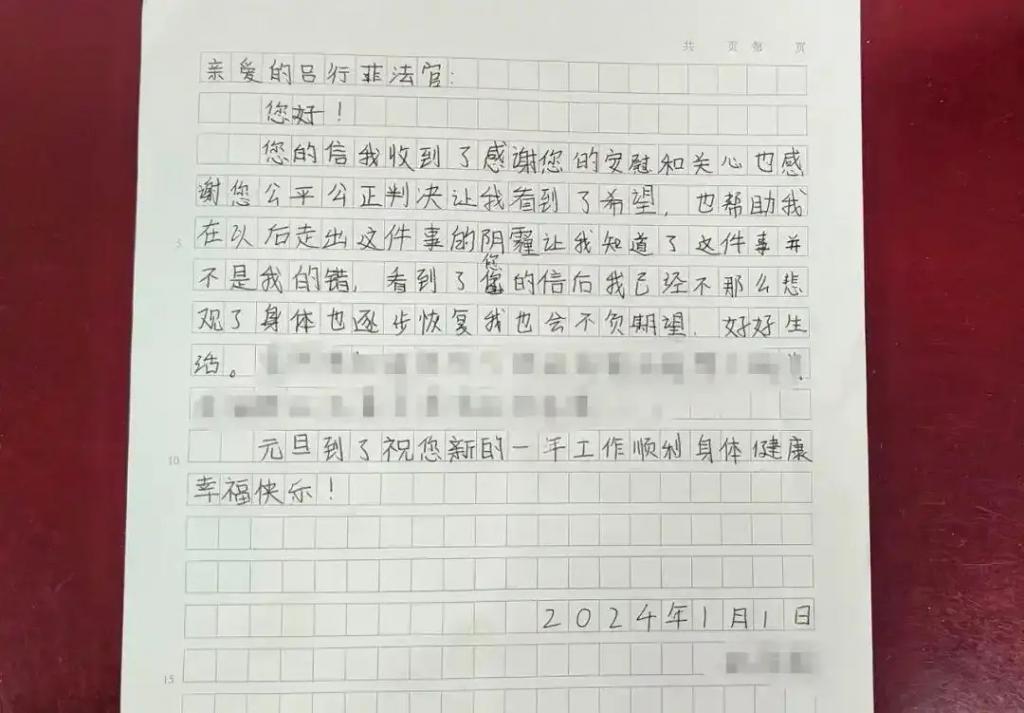 共 页 第 页
亲爱的吕行菲法官:
您好!
您的信我收到了感谢您的安慰和关心也感
谢您公平公正判决让我看到了希望,也帮助我
5
在以后走出这件事的阴霾让我知道了这件事并
不是我的错,看到了您的信后我已经不那么悲
观了身体也逐步恢复我也会不负期望,好好生
活。
元旦到了祝您新的一年工作顺利身体健康
10
幸福快乐!
2024年1月1日
15